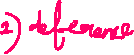 2) deference